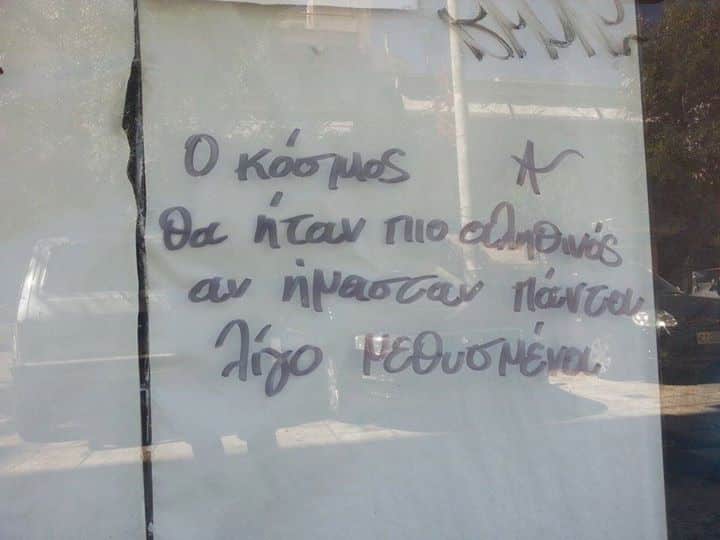 Ο κόσμος
θα ήταν πιο αληθινός
αν ήμασταν πάντα
λίγο μεθυσμένοι